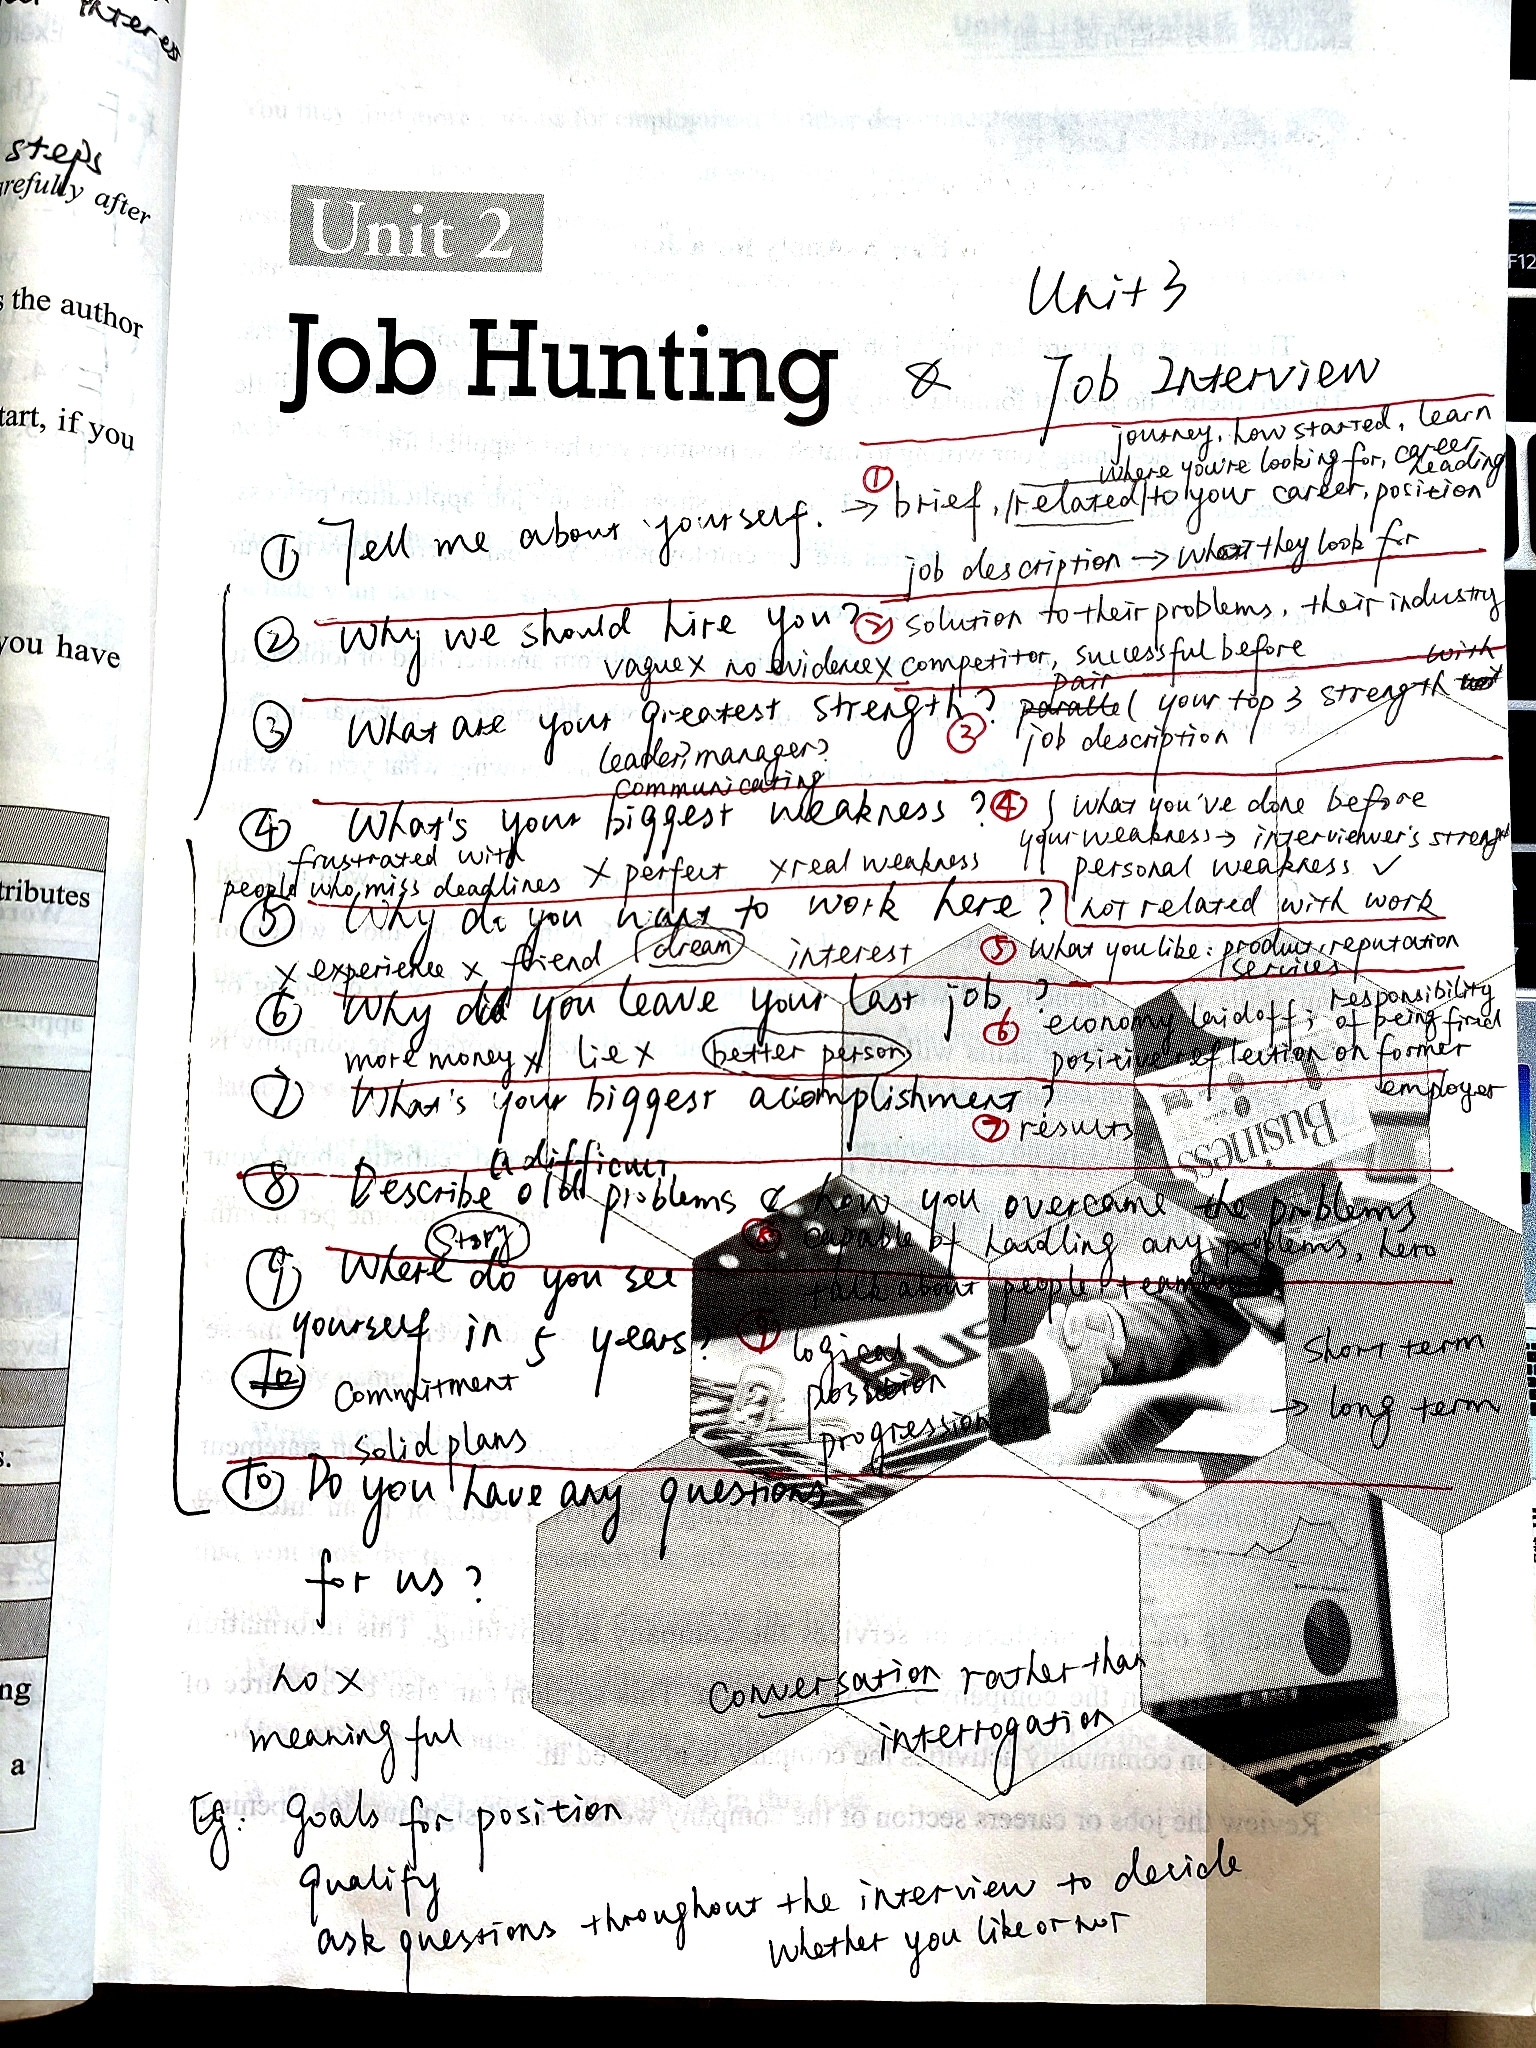 interes
steps
refully after
s the author
tart, if you
you have
tributes
s.
ng
a
F12
Unit 2
Unit 3
Job Hunting & Job Interview
journey, how started, learn
where you're looking for, career
leading
① Tell me about yourself. → ① brief, related to your career, position
job description → what they look for
② Why we should hire you? ② solution to their problems, their industry
vague x no evidence x competitor, successful before
③ What are your greatest strength? pair your top 3 strength with
③ job description
leader? manager?
communicating
④ What's your biggest weakness? ④ what you've done before
your weakness → interviewer's strength
frustrated with
people who miss deadlines x perfect x real weakness personal weakness ✓
not related with work
⑤ Why do you want to work here?
x experience x friend dream interest ⑤ What you like: product, reputation
services
⑥ Why did you leave your last job? ⑥ economy laidoff; responsibility
of being fired
more money x lie x better person positive reflection on former
employer
⑦ What's your biggest acomplishment?
⑦ results
a difficult
⑧ Describe old problems & how you overcame the problems
Story ⑧ capable of handling any problems, hero
talk about people team
⑨ Where do you see
yourself in 5 years? ⑨ logical
position
progression
short term
→ long term
10
Commitment
solid plans
⑩ Do you have any questions
for us?
no x
meaningful
Conversation rather than
interrogation
Eg: Goals for position
qualify
ask questions throughout the interview to decide
whether you like or not
Business
Bus